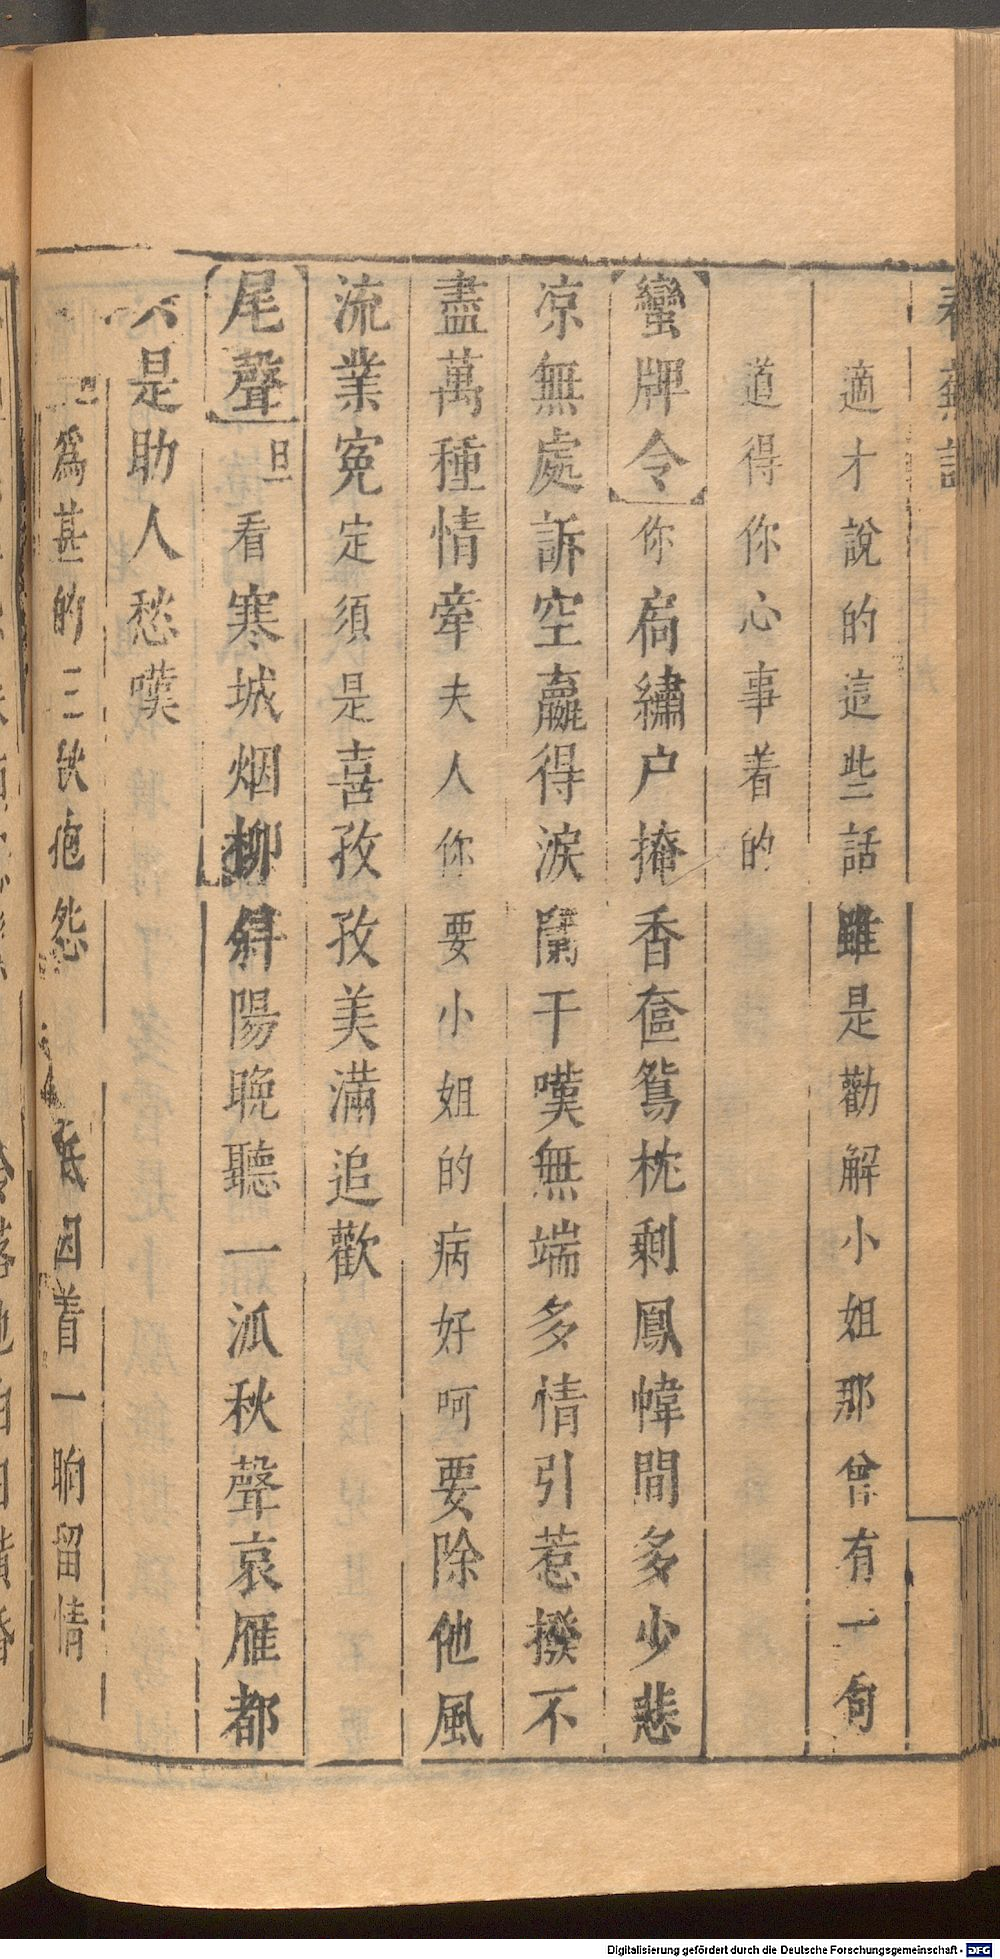 適才說的這些話雖是勸解小姐那曾有一句
道得你心事着的
蠻牌令你扃繡户掩香奩鴛枕剩鳳幃間多少悲
凉無處訴空贏得淚闌干嘆無端多情引惹撥不
盡萬種情牽夫人你要小姐的病好呵要除他風
流業寃定須是喜孜孜美滿追歡
尾聲旦看寒城烟柳斜陽晚聽一派秋聲哀雁都
只是助人愁嘆
爲甚的三秋抱怨 衹因着一晌留情
Digitalisierung gefördert durch die Deutsche Forschungsgemeinschaft - DFG